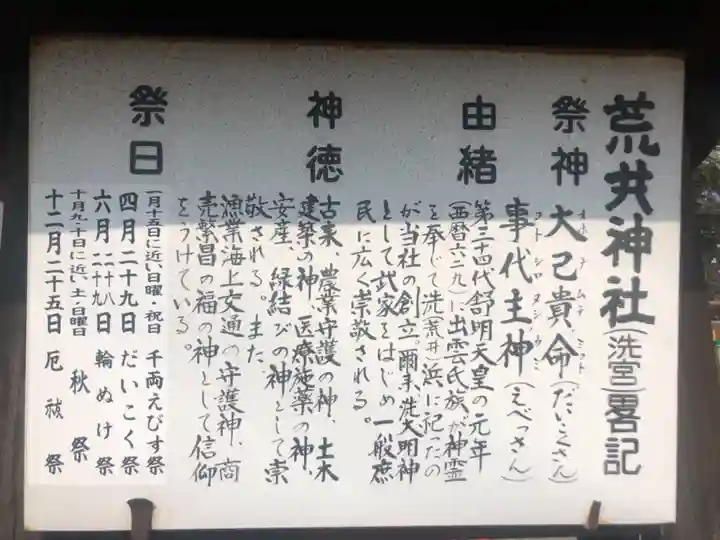 荒井神社(洗宮)畧記
祭神 大己貴命(だいこくさん)
オホナムチノミコト
事代主神(えべっさん)
コトシロヌシノカミ
由緒
第三十四代舒明天皇の元年
(西暦六二九)に出雲氏族が神霊
を奉じて洗(荒井)浜に祀ったの
が当社の創立。爾来、洗大明神
として武家をはじめ一般庶
民に広く崇敬される。
神徳
古来、農業守護の神、土木
建築の神、医療施薬の神、
安産、縁結びの神として崇
敬される。また
漁業海上交通の守護神、商
売繁昌の福の神として信仰
をうけている。
祭日
一月十五日に近い日曜・祝日 千両えびす祭
四月二十九日 だいこく祭
六月二十八二十九日 輪ぬけ祭
十月九・十日に近い土・日曜日 秋祭
十二月二十五日 厄祓祭